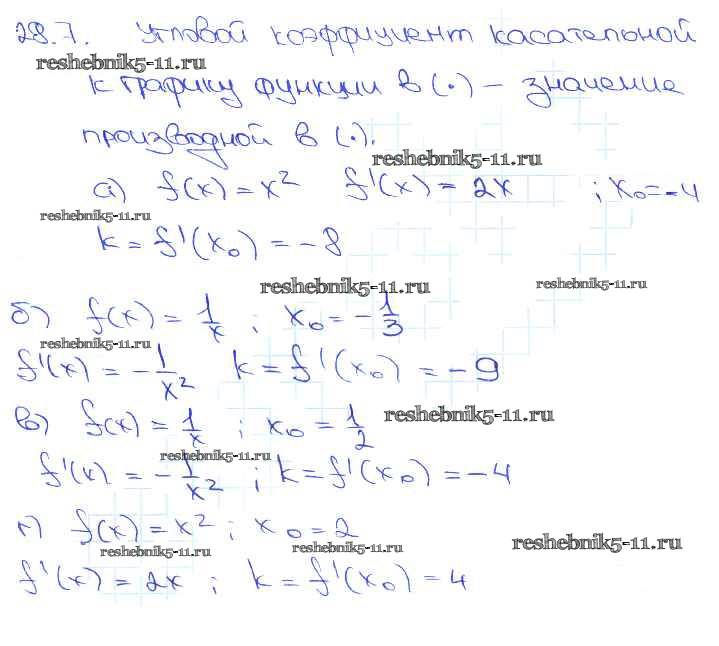 28.7. Угловой коэффициент касательной
reshebnik5-11.ru
к графику функции в (·) – значение
производной в (·).
reshebnik5-11.ru
а) f(x) = x² f'(x) = 2x ; x₀ = -4
reshebnik5-11.ru
k = f'(x₀) = -8
reshebnik5-11.ru
reshebnik5-11.ru
б) f(x) = 1/x ; x₀ = -1/3
reshebnik5-11.ru
f'(x) = -1/x² k = f'(x₀) = -9
в) f(x) = 1/x ; x₀ = 1/2
reshebnik5-11.ru
reshebnik5-11.ru
f'(x) = -1/x² ; k = f'(x₀) = -4
г) f(x) = x² ; x₀ = 2
reshebnik5-11.ru
reshebnik5-11.ru
reshebnik5-11.ru
f'(x) = 2x ; k = f'(x₀) = 4